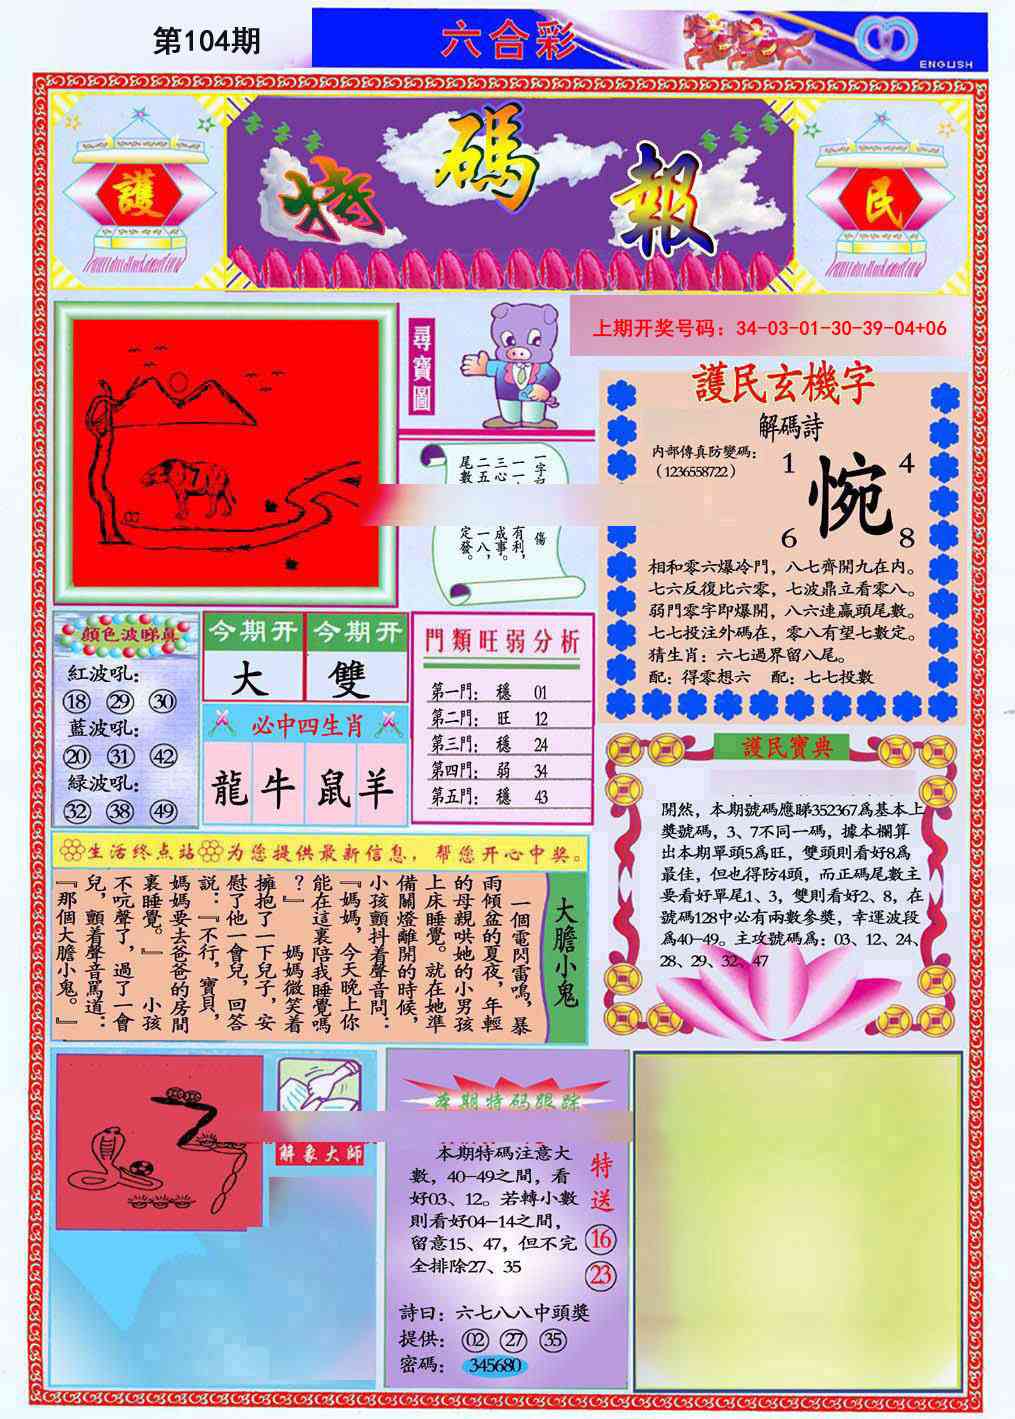 第104期
六合彩
ENGLISH
護
特碼報
民
上期开奖号码：34-03-01-30-39-04+06
尋寶圖
有利，
成事。
一八，
定發。
護民玄機字
解碼詩
内部傳真防變碼：
（1236558722）
1
4
惋
6
8
相和零六爆冷門，八七齊開九在内。
七六反復比六零，七波鼎立看零八。
弱門零字即爆開，八六連贏頭尾數。
七七投注外碼在，零八有望七數定。
猜生肖：六七過界留八尾。
配：得零想六 配：七七投數
顔色波睇真
紅波吼：
18 29 30
藍波吼：
20 31 42
緑波吼：
32 38 49
今期开 今期开
大 雙
必中四生肖
龍 牛 鼠 羊
門類旺弱分析
第一門： 穩 01
第二門： 旺 12
第三門： 穩 24
第四門： 弱 34
第五門： 穩 43
護民寶典
開然，本期號碼應睇352367爲基本上
獎號碼，3、7不同一碼，據本欄算
出本期單頭5爲旺，雙頭則看好8爲
最佳，但也得防4頭，而正碼尾數主
要看好單尾1、3，雙則看好2、8，在
號碼128中必有兩數參獎，幸運波段
爲40-49。主攻號碼爲：03、12、24、
28、29、32、47
生活终点站 为您提供最新信息，帮您开心中奖。
大膽小鬼
一個電閃雷鳴，暴
雨傾盆的夏夜，年輕
的母親哄她的小男孩
上床睡覺。就在她準
備關燈離開的時候，
小孩顫抖着聲音問：
『媽媽，今天晚上你
能在這裏陪我睡覺嗎
？』 媽媽微笑着
擁抱了一下兒子，安
慰了他一會兒，回答
説：『不行，寶貝，
媽媽要去爸爸的房間
裏睡覺。』 小孩
不吭聲了，過了一會
兒，顫着聲音駡道：
『那個大膽小鬼。』
解象大師
本期特码跟踪
本期特碼注意大
數，40-49之間，看
好03、12。若轉小數
則看好04-14之間，
留意15、47，但不完
全排除27、35
特送
16
23
詩曰：六七八八中頭獎
提供： 02 27 35
密碼： 345680